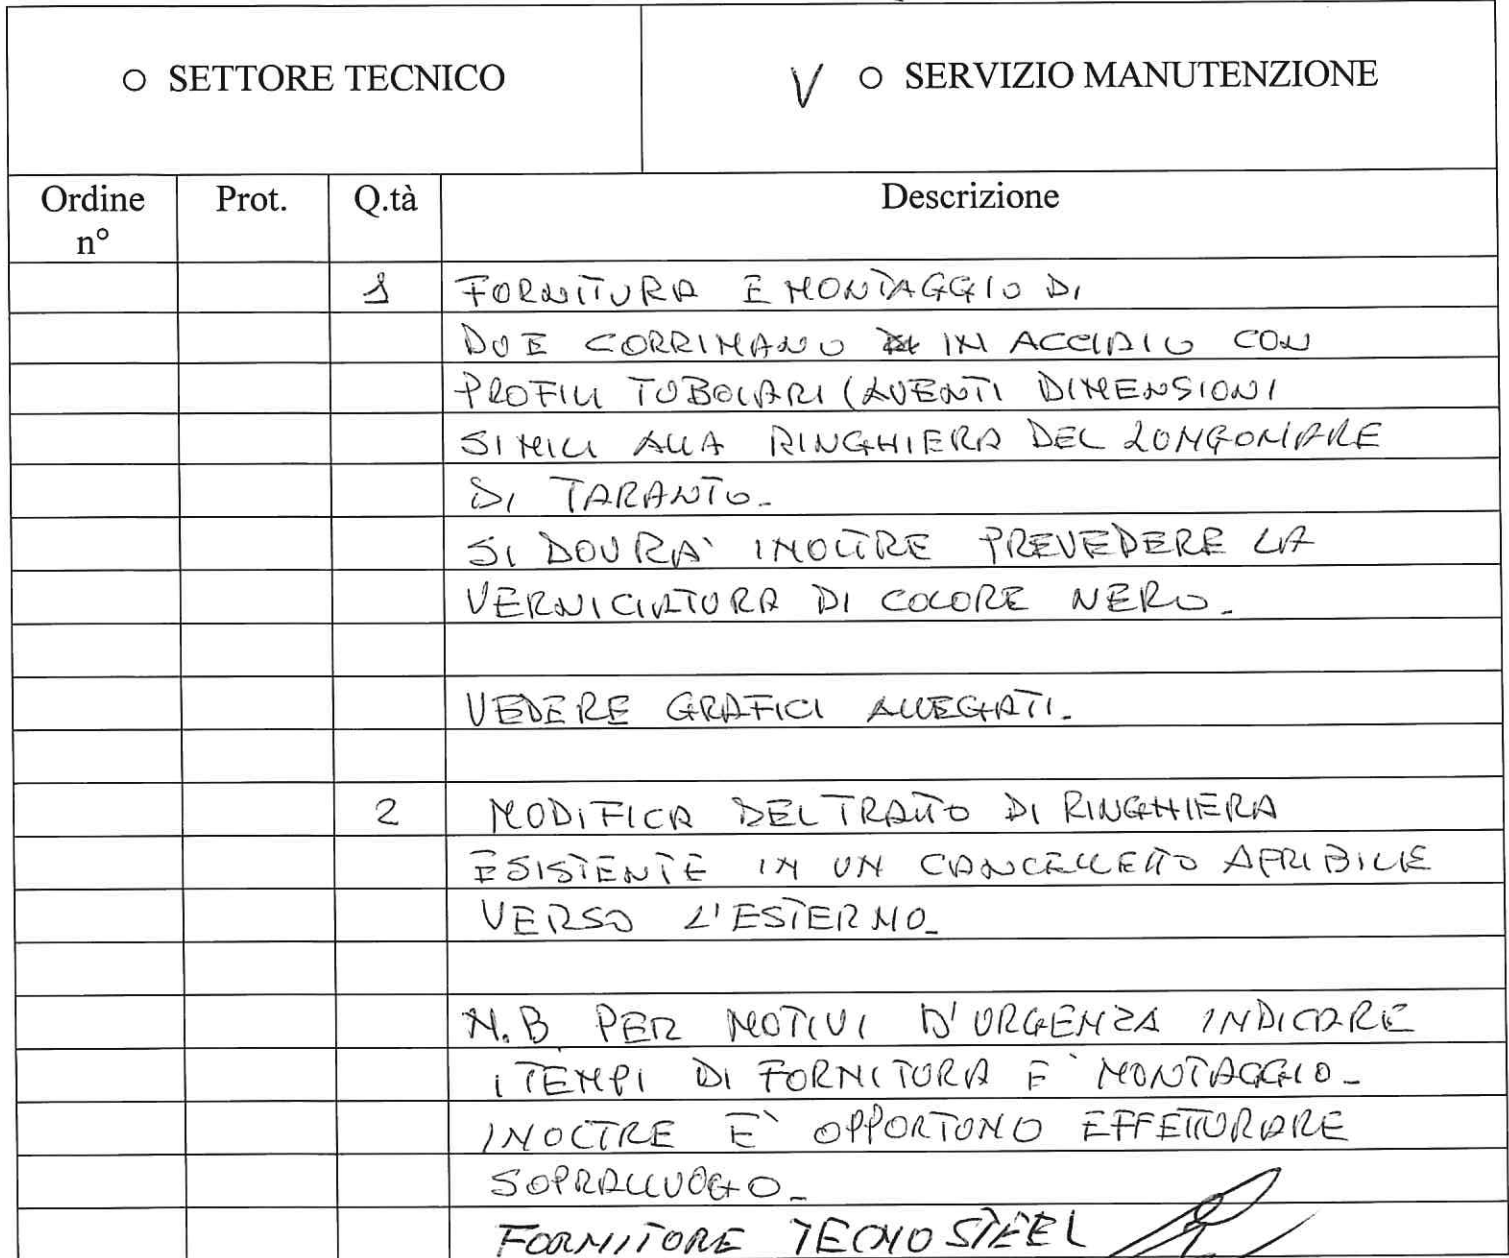 ○ SETTORE TECNICO
V ○ SERVIZIO MANUTENZIONE
Ordine n° Prot. Q.tà Descrizione
1 FORNITURA E MONTAGGIO DI
DUE CORRIMANO IN ACCIAIO CON
PROFILI TUBOLARI (AVENTI DIMENSIONI
SIMILI ALLA RINGHIERA DEL LUNGOMARE
DI TARANTO.
SI DOVRA' INOLTRE PREVEDERE LA
VERNICIATURA DI COLORE NERO.
VEDERE GRAFICI ALLEGATI.
2 MODIFICA DEL TRATTO DI RINGHIERA
ESISTENTE IN UN CANCELLETTO APRIBILE
VERSO L'ESTERNO.
N.B PER MOTIVI D'URGENZA INDICARE
i TEMPI DI FORNITURA E' MONTAGGIO.
INOLTRE E' OPPORTUNO EFFETTUARE
SOPRALLUOGO.
FORNITORE TECNOSTEEL